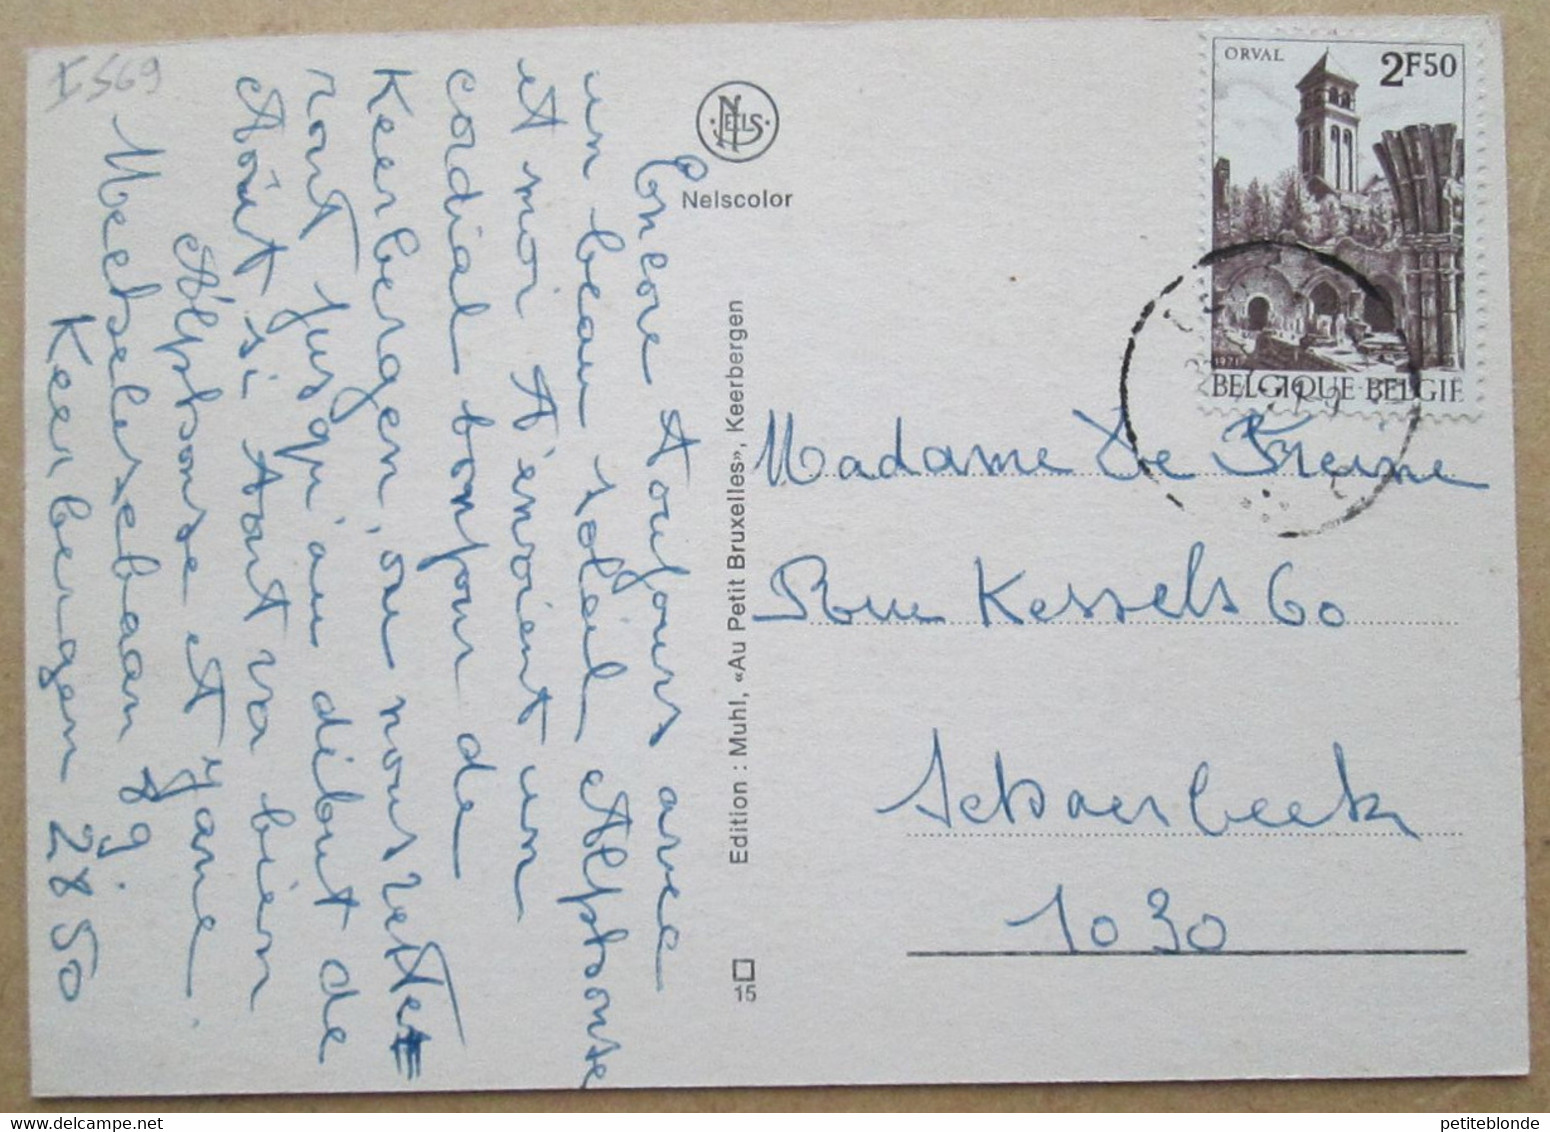 I569
Encore toujours avec
un beau soleil Alphonse
et moi t'envoient un
cordial bonjour de
Keerbergen, ou nous
sont jusqu'au début de
Août si tout va bien
Alphonse et Jane.
Mechelsebaan 9.
Keerbergen 2850
NELS
Nelscolor
Edition : Muhl, «Au Petit Bruxelles», Keerbergen
15
ORVAL
2F50
1971
BELGIQUE-BELGIE
Madame De
Rue Kessels 60
Schaerbeek
1030
petiteblonde